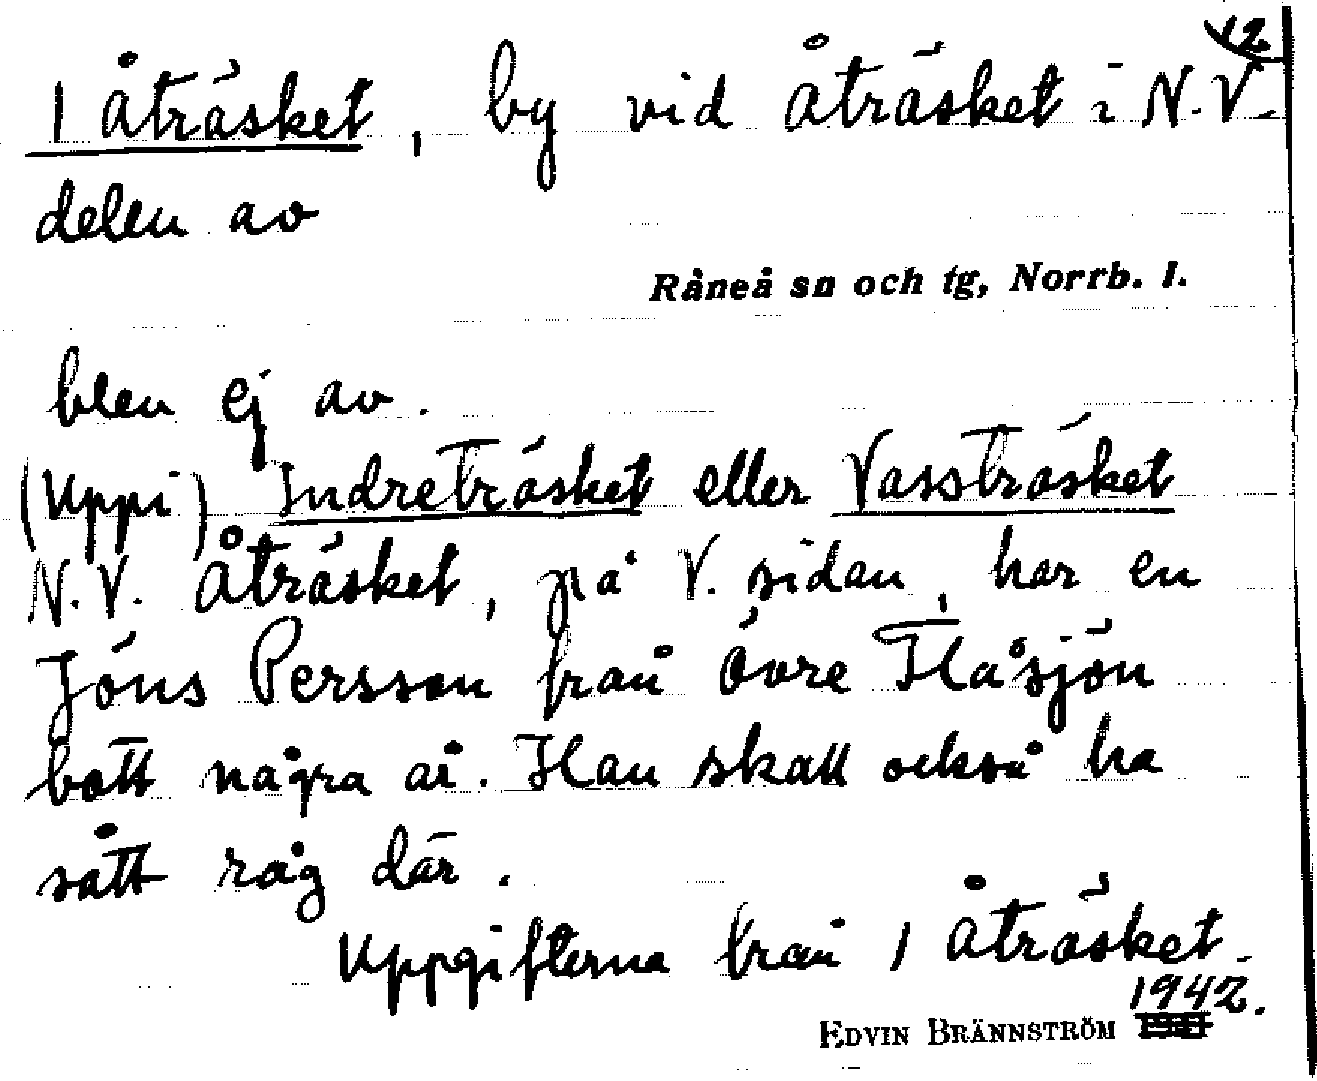 12
1 Åträsket, by vid Åträsket i N.V.
delen av
Råneå sn och tg, Norrb. l.
blen ej av.
(Uppi) Indreträsket eller Vassträsket
N.V. Åträsket, på V. sidan, har en
Jöns Persson från övre Flåsjön
bott några år. Han skall också ha
sått råg där.
Uppgifterna från 1 Åträsket.
1942.
EDVIN BRÄNNSTRÖM